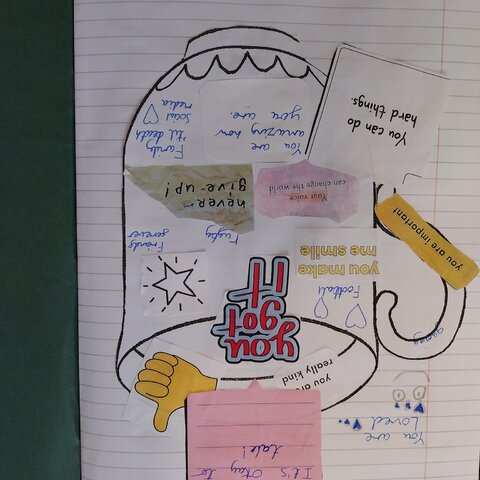 It's Okay to
tale!
You are
Loved
you are
really kind
you got
IT
gaming
Football
you make
me smile
Rugby
Friends
forever
you are important!
Your voice
can change the world
never
give up!
You are
amazing how
you are.
Family 'til death
Social
media
You can do
hard things.